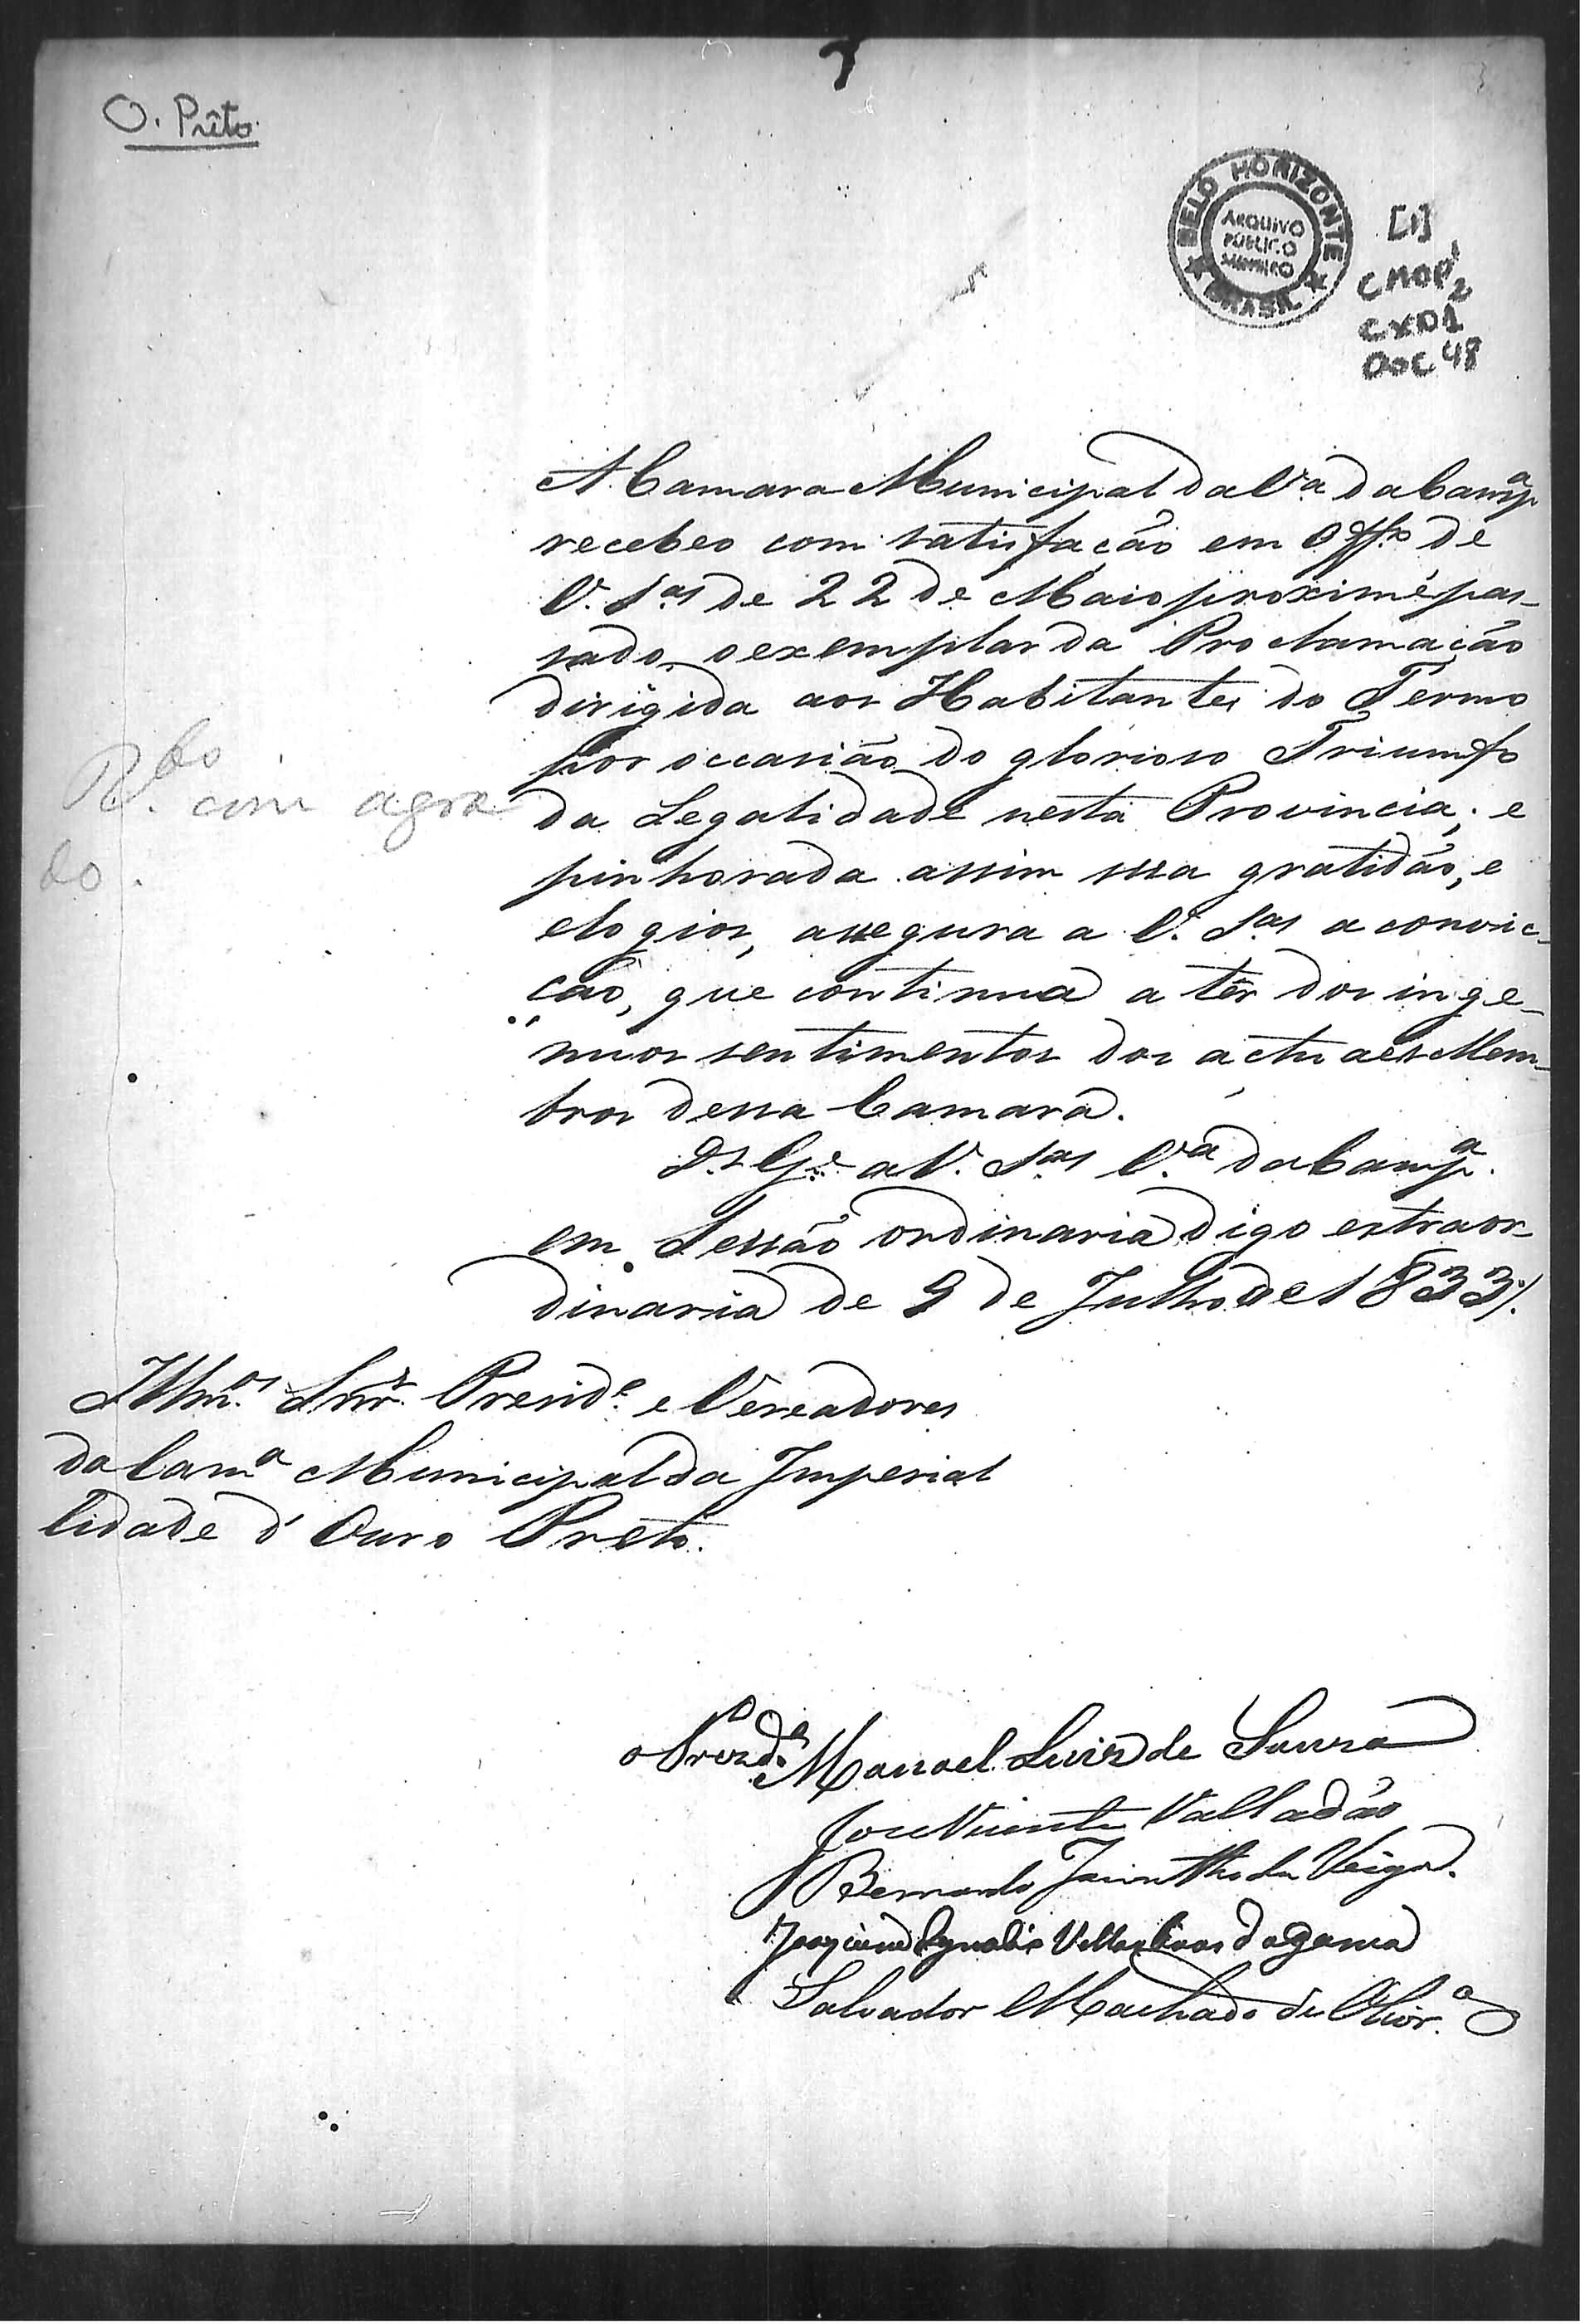 O. Prêto.
BELO HORIZONTE
ARQUIVO
PÚBLICO
MINEIRO
BRASIL
[1]
CMOP2
CX01
DOC 48
A Camara Municipal da Vª da Campª
recebeo com satisfação em Offº de
V. Sas de 22 de Maio proximo pas-
sado, o exemplar da Proclamação
dirigida aos Habitantes do Termo
por occasião do glorioso Triumfo
da Legalidade nesta Provincia; e
pinhorada assim sua gratidão, e
elogios, assegura a V. Sas a convic-
ção, que continua a têr dos inge-
nuos sentimentos dos actuaes Mem-
bros dessa Camara.
Rbdo. com agra
do.
Ds. Ge. a V. Sas Vª da Campª.
em Sessão ordinaria digo extraor-
dinaria de 9 de Julho de 1833.
Illmos. Snrs. Preside. e Vereadores
da Camª Municipal da Imperial
Cidade d'Ouro Preto.
o Preside. Manoel Luiz de Souza
Jose Vicente Valladão
Bernardo Jacintho da Veiga.
Joaquim Ignacio Villas Boas da Gama
Salvador Machado de Olivrª